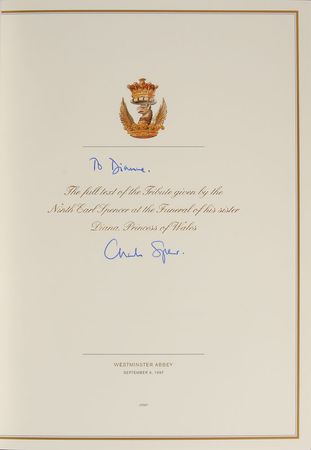 To Dianne.
The full text of the Tribute given by the
Ninth Earl Spencer at the Funeral of his sister
Diana, Princess of Wales
Charles Spencer.
WESTMINSTER ABBEY
SEPTEMBER 6, 1997